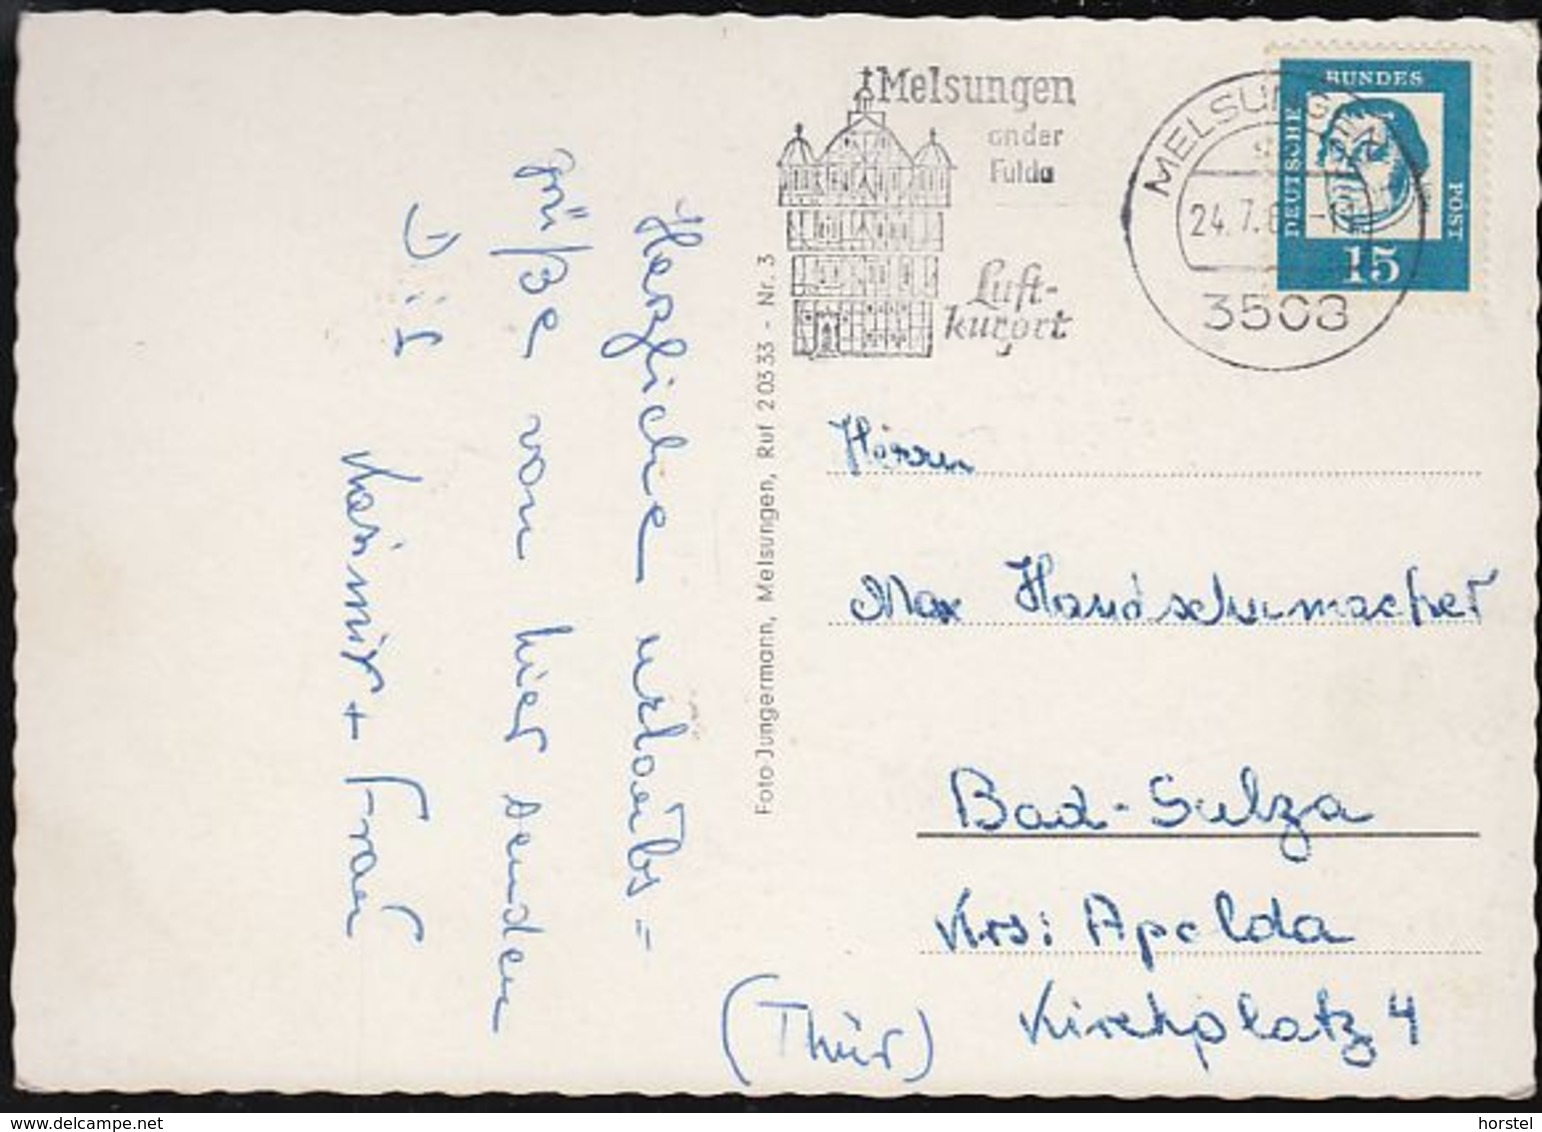 Melsungen
an der
Fulda
Luft-
kurort
MELSUNGEN
24.7.6
3508
DEUTSCHE
BUNDES
POST
15
Herzliche urlaubs=
grüße von hier senden
Kasimir + Frau
Foto-Jungermann, Melsungen, Ruf 20333 - Nr. 3
Herrn
Max Handschumacher
Bad-Sulza
Krs: Apolda
Kirchplatz 4
(Thür)
horstel